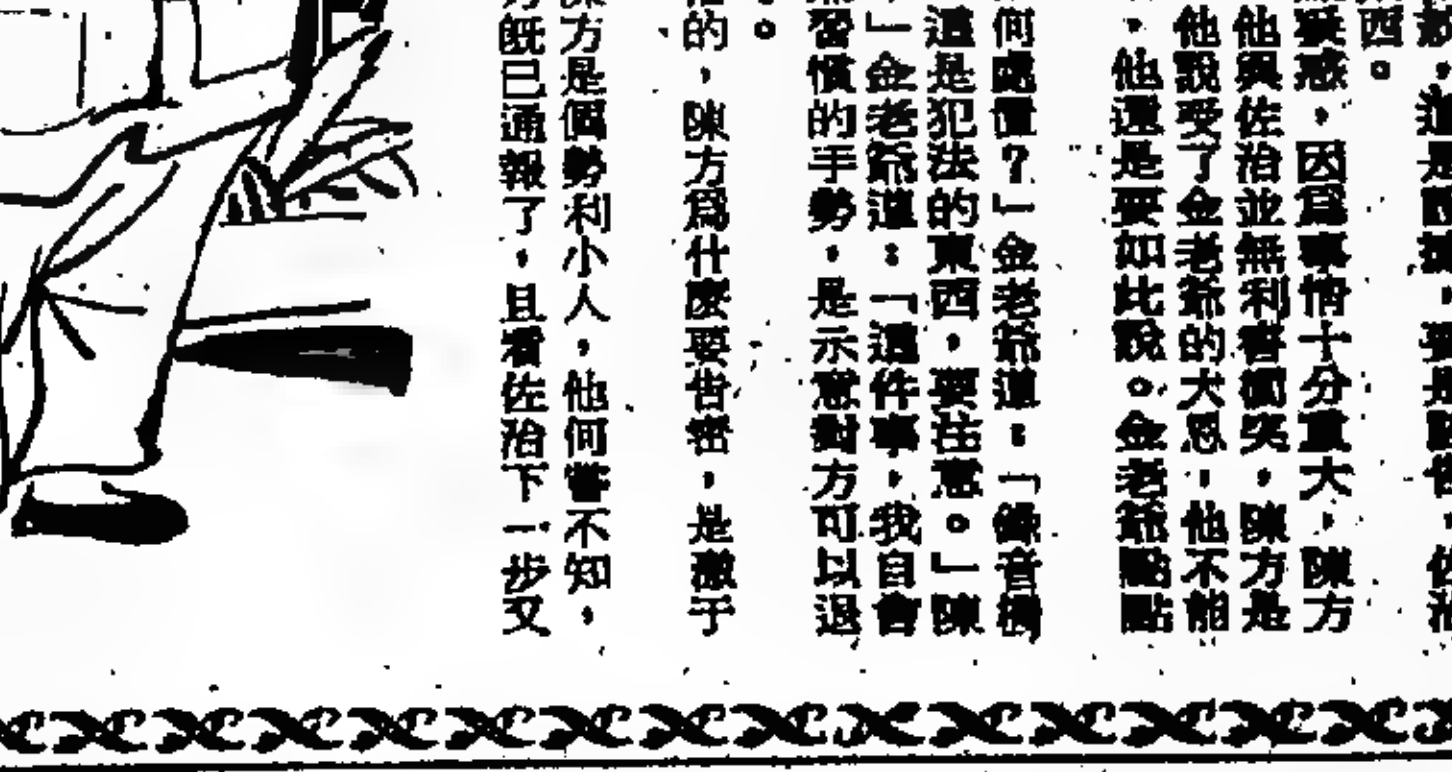 ，這是
西。
疑惑，因爲事情十分重大，陳方
他與佐治並無利害衝突，陳方是
他說受了金老爺的大恩，他不能
，他還是要如此說。金老爺點點
何處置？」金老爺道：「錄音機
這是犯法的東西，要注意。」陳
」金老爺道：「這件事，我自會
習慣的手勢，是示意對方可以退
。
的，陳方爲什麼要告密，是激于
方是個勢利小人，他何嘗不知，
既已通報了，且看佐治下一步又